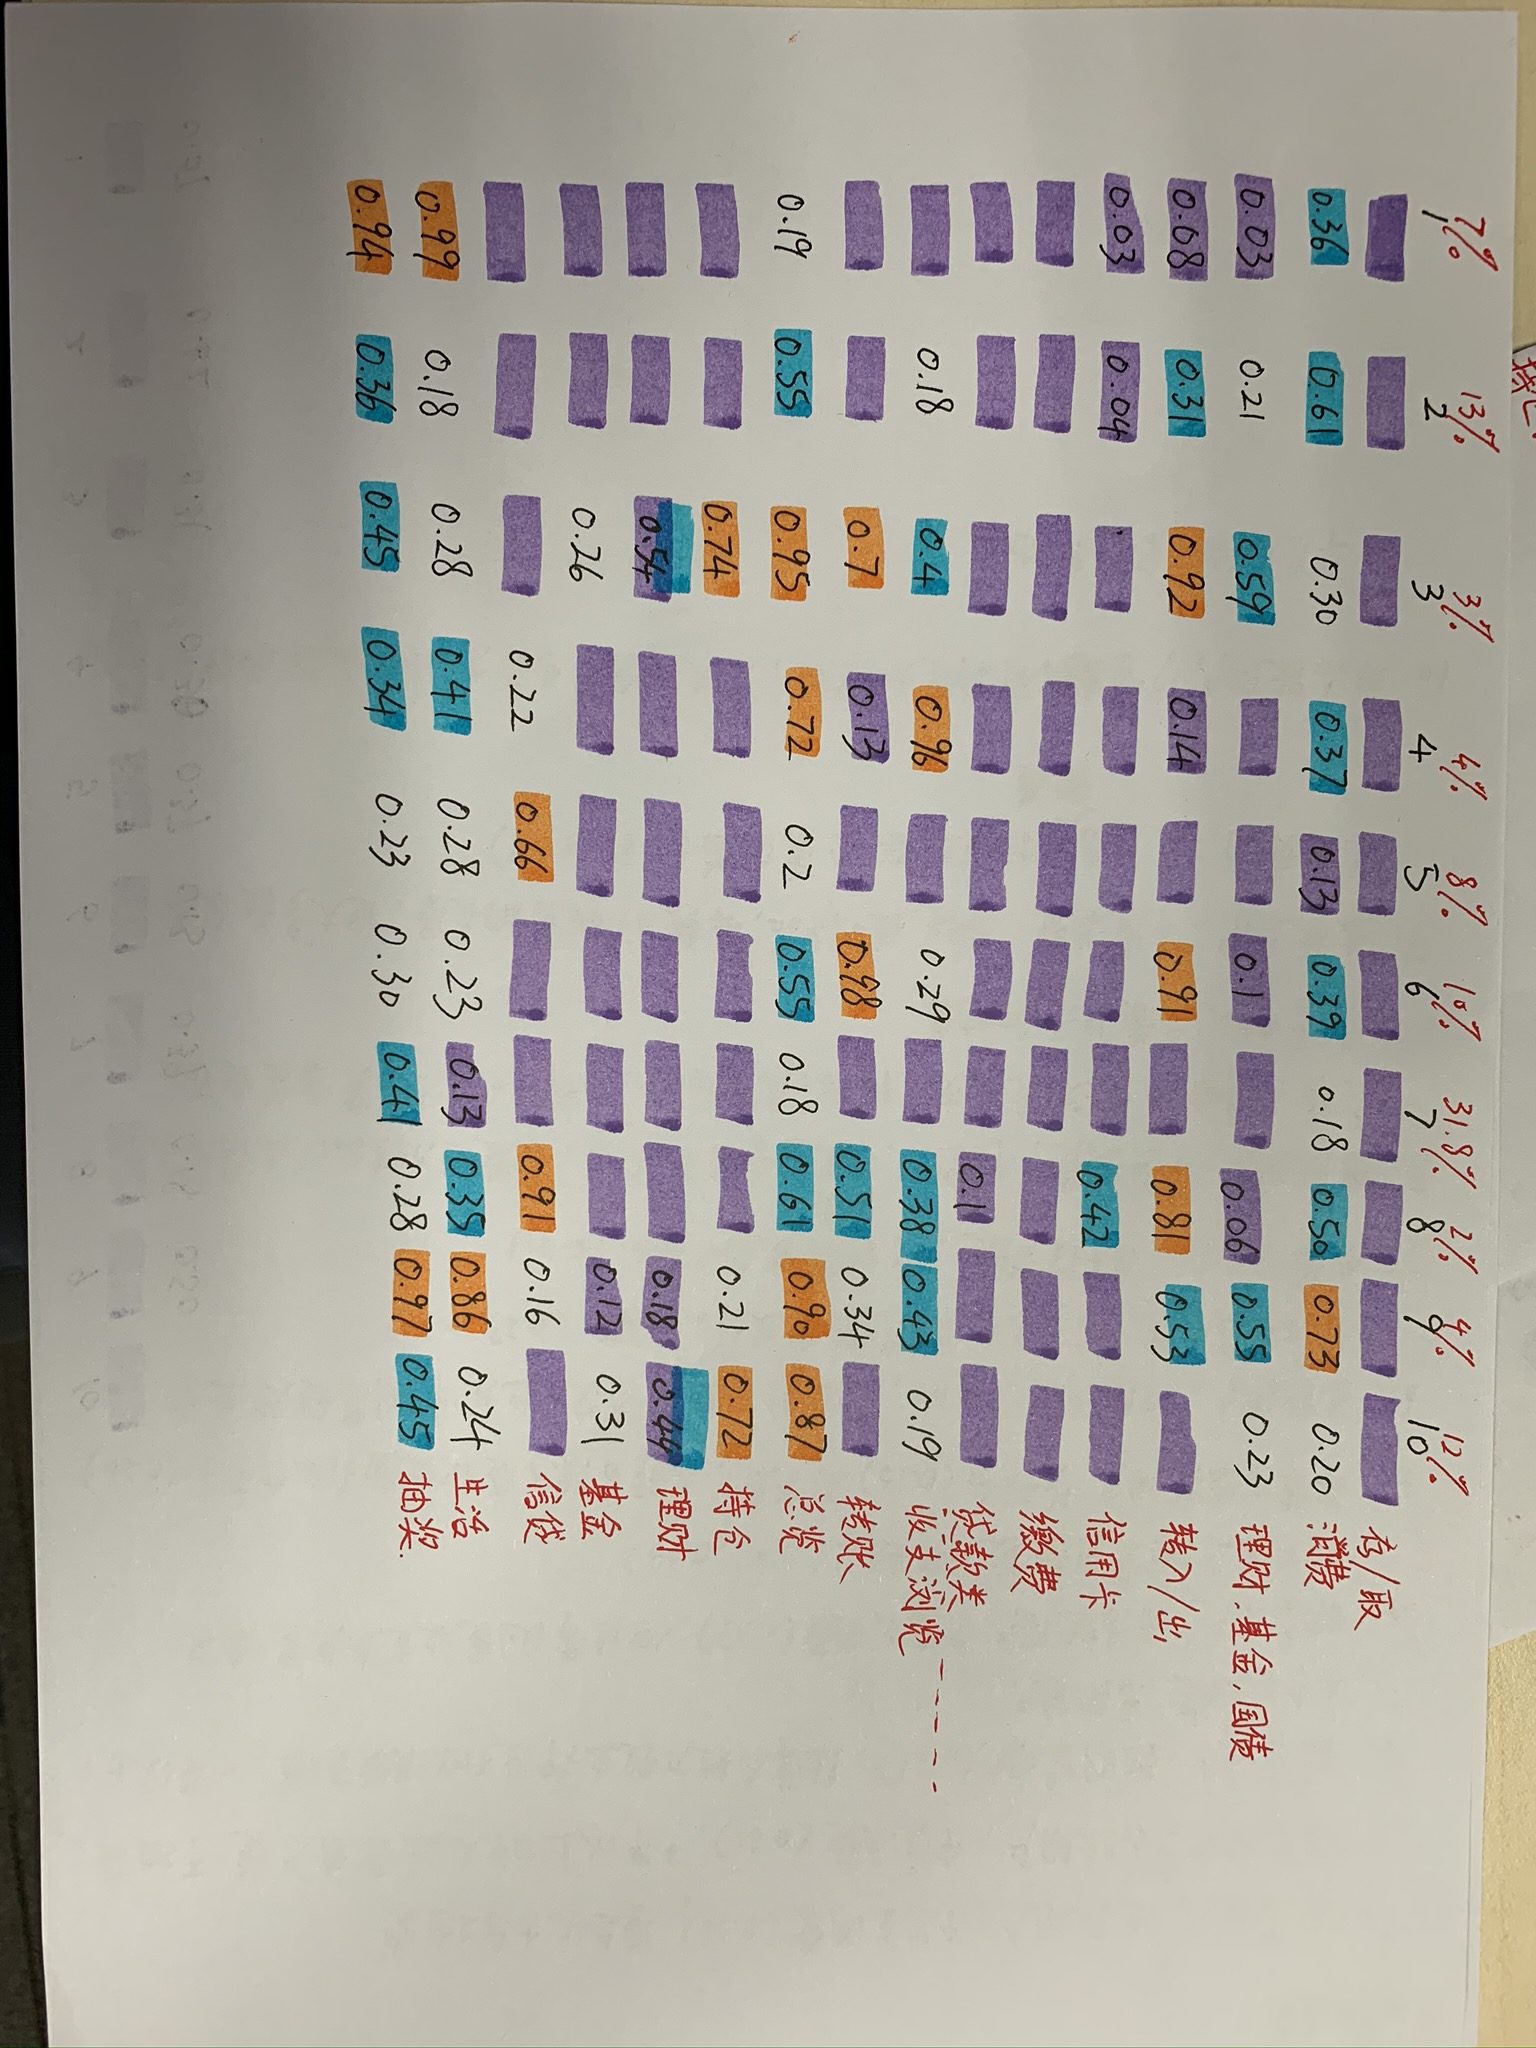 持仓
7% 13% 3% 4% 8% 10% 31.8% 2% 4% 12%
1 2 3 4 5 6 7 8 9 10
存/取
0.36 0.61 0.30 0.37 0.13 0.39 0.18 0.50 0.73 0.20 消费
0.03 0.21 0.59 0.1 0.06 0.55 0.23 理财.基金.国债
0.08 0.31 0.92 0.14 0.91 0.81 0.53 转入/出
0.03 0.04 0.42 信用卡
缴费
0.1 贷款类
0.18 0.4 0.96 0.29 0.38 0.43 0.19 收支浏览
0.7 0.13 0.98 0.51 0.34 转账
0.19 0.55 0.95 0.72 0.2 0.55 0.18 0.61 0.90 0.87 总览
0.74 0.21 0.72 持仓
0.54 0.18 0.44 理财
0.26 0.12 0.31 基金
0.22 0.66 0.91 0.16 信贷
0.99 0.18 0.28 0.41 0.28 0.23 0.13 0.35 0.86 0.24 生活
0.94 0.36 0.45 0.34 0.23 0.30 0.41 0.28 0.97 0.45 抽奖.